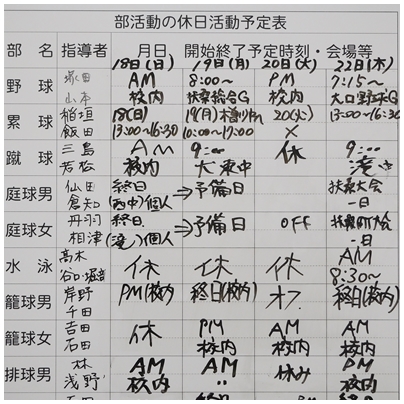 部活動の休日活動予定表
部 名 指導者 月日 開始終了予定時刻・会場等
18日(日) 19日(月) 20日(火) 22日(木)
野 球 塚田 AM 8:00〜 PM 7:15〜
山本 校内 扶桑総合G 校内 大口野球G
塁 球 稲垣 18(日) 19(月) 20(火) 13:00〜16:30
飯田 13:00〜16:30 10:00〜17:00 ×
蹴 球 三島 AM 9:00 休 9:00
若松 校内 大東中 滝
庭球男 仙田 終日 ⇒予備日 扶桑大会
倉知 (西中)個人 一日
庭球女 丹羽 終日 ⇒予備日 OFF 扶桑町大会
相津 (滝)個人 一日
水 泳 高木 休 休 休 AM
谷口・堀音 8:30〜
籠球男 岸野 PM(校内) 終日(校内) オフ 終日(校内)
千田
籠球女 吉田 休 PM AM AM
石田 校内 校内 校内
排球男 林 AM AM 休み PM
浅野 校内 〃 校内